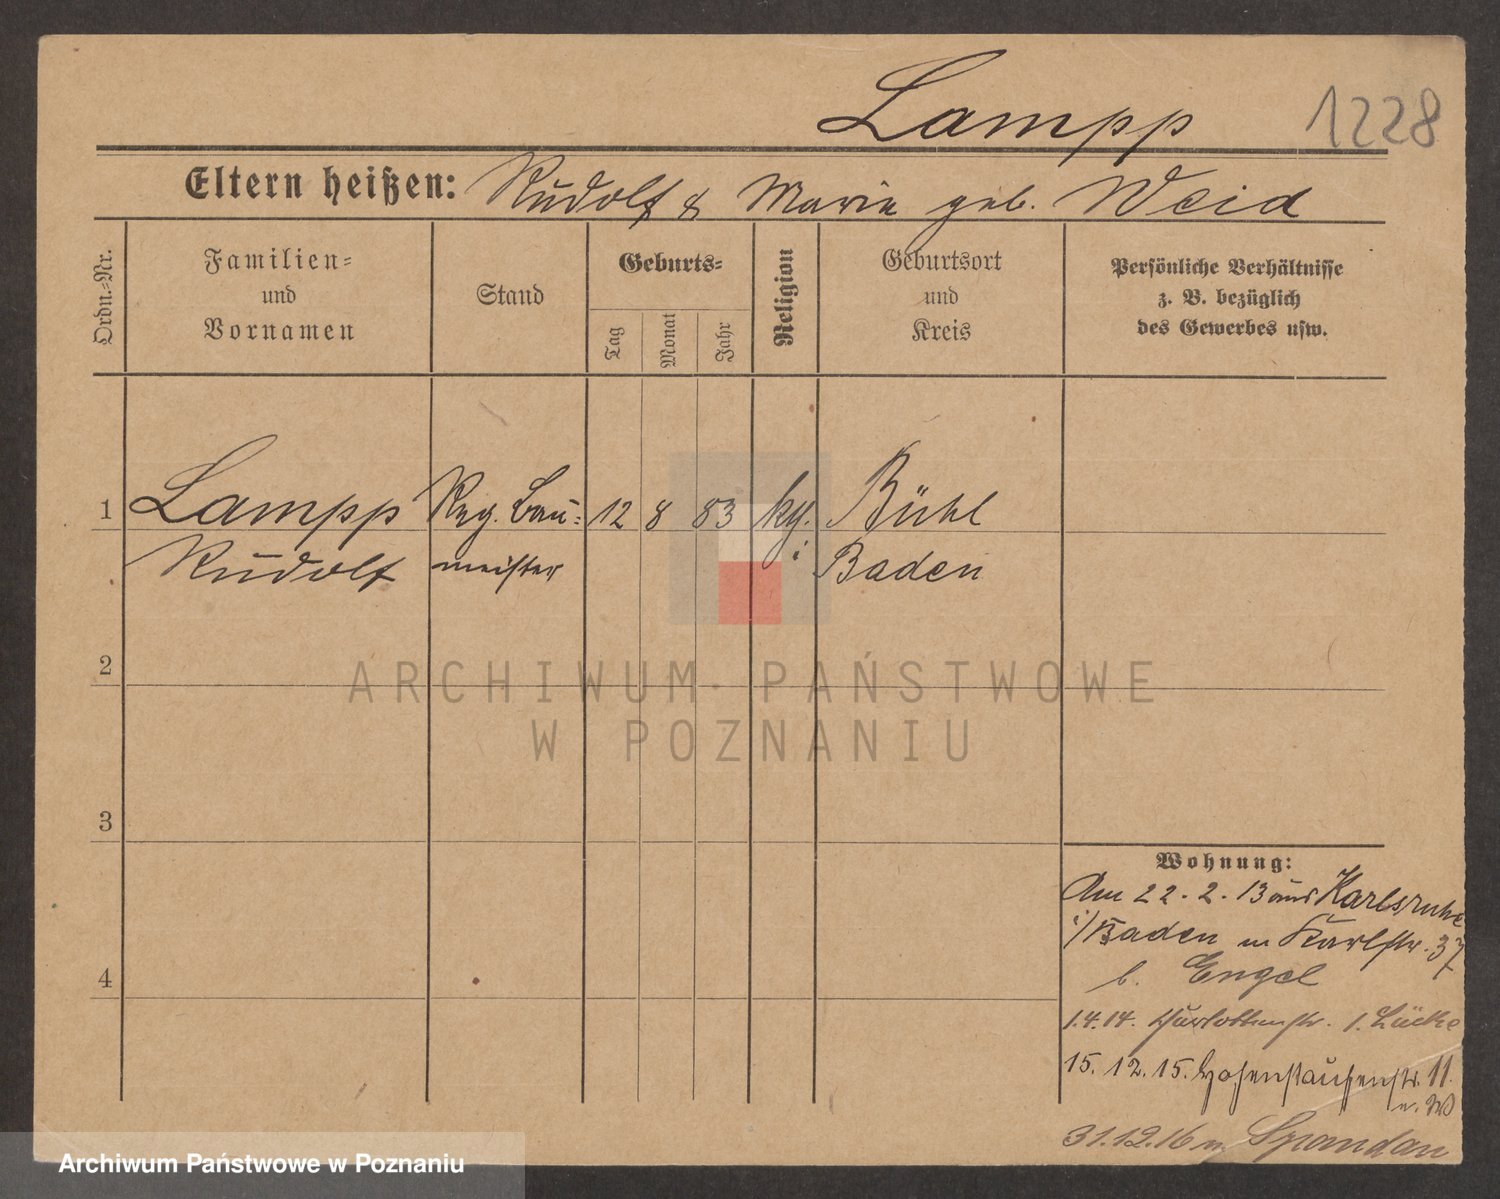 Lampp 1228
Eltern heißen: Rudolf & Marie geb. Weid
Ordn.-Nr.
Familien-
und
Vornamen
Stand
Geburts-
Tag
Monat
Jahr
Religion
Geburtsort
und
Kreis
Persönliche Verhältnisse
z. B. bezüglich
des Gewerbes usw.
1 Lampp Reg. Bau- 12 8 83 Bühl
Rudolf meister i Baden
2
ARCHIWUM PAŃSTWOWE
W POZNANIU
3
Wohnung:
Am 22.2.13 aus Karlsruhe
i/Baden n Karlstr. 37
b. Engel
4
1.4.14. Charlottenstr. 1. Lücke
15.12.15. Hohenstaufenstr. 11.
n. W
31.12.16 n Spandau
Archiwum Państwowe w Poznaniu